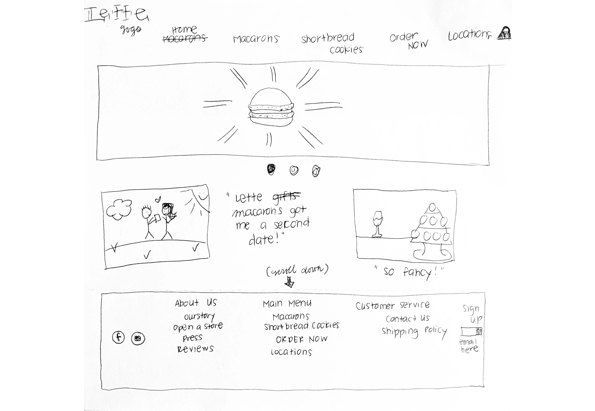 Lette
logo
Home
Macarons
Macarons
Shortbread
Cookies
Order
Now
Locations
"Lette gifts
macarons got
me a second
date!"
"so fancy!"
(scroll down)
About Us
ourstory
Open a store
Press
Reviews
Main Menu
Macarons
Shortbread Cookies
ORDER NOW
Locations
Customer Service
Contact Us
Shipping Policy
Sign
Up
email
here
f